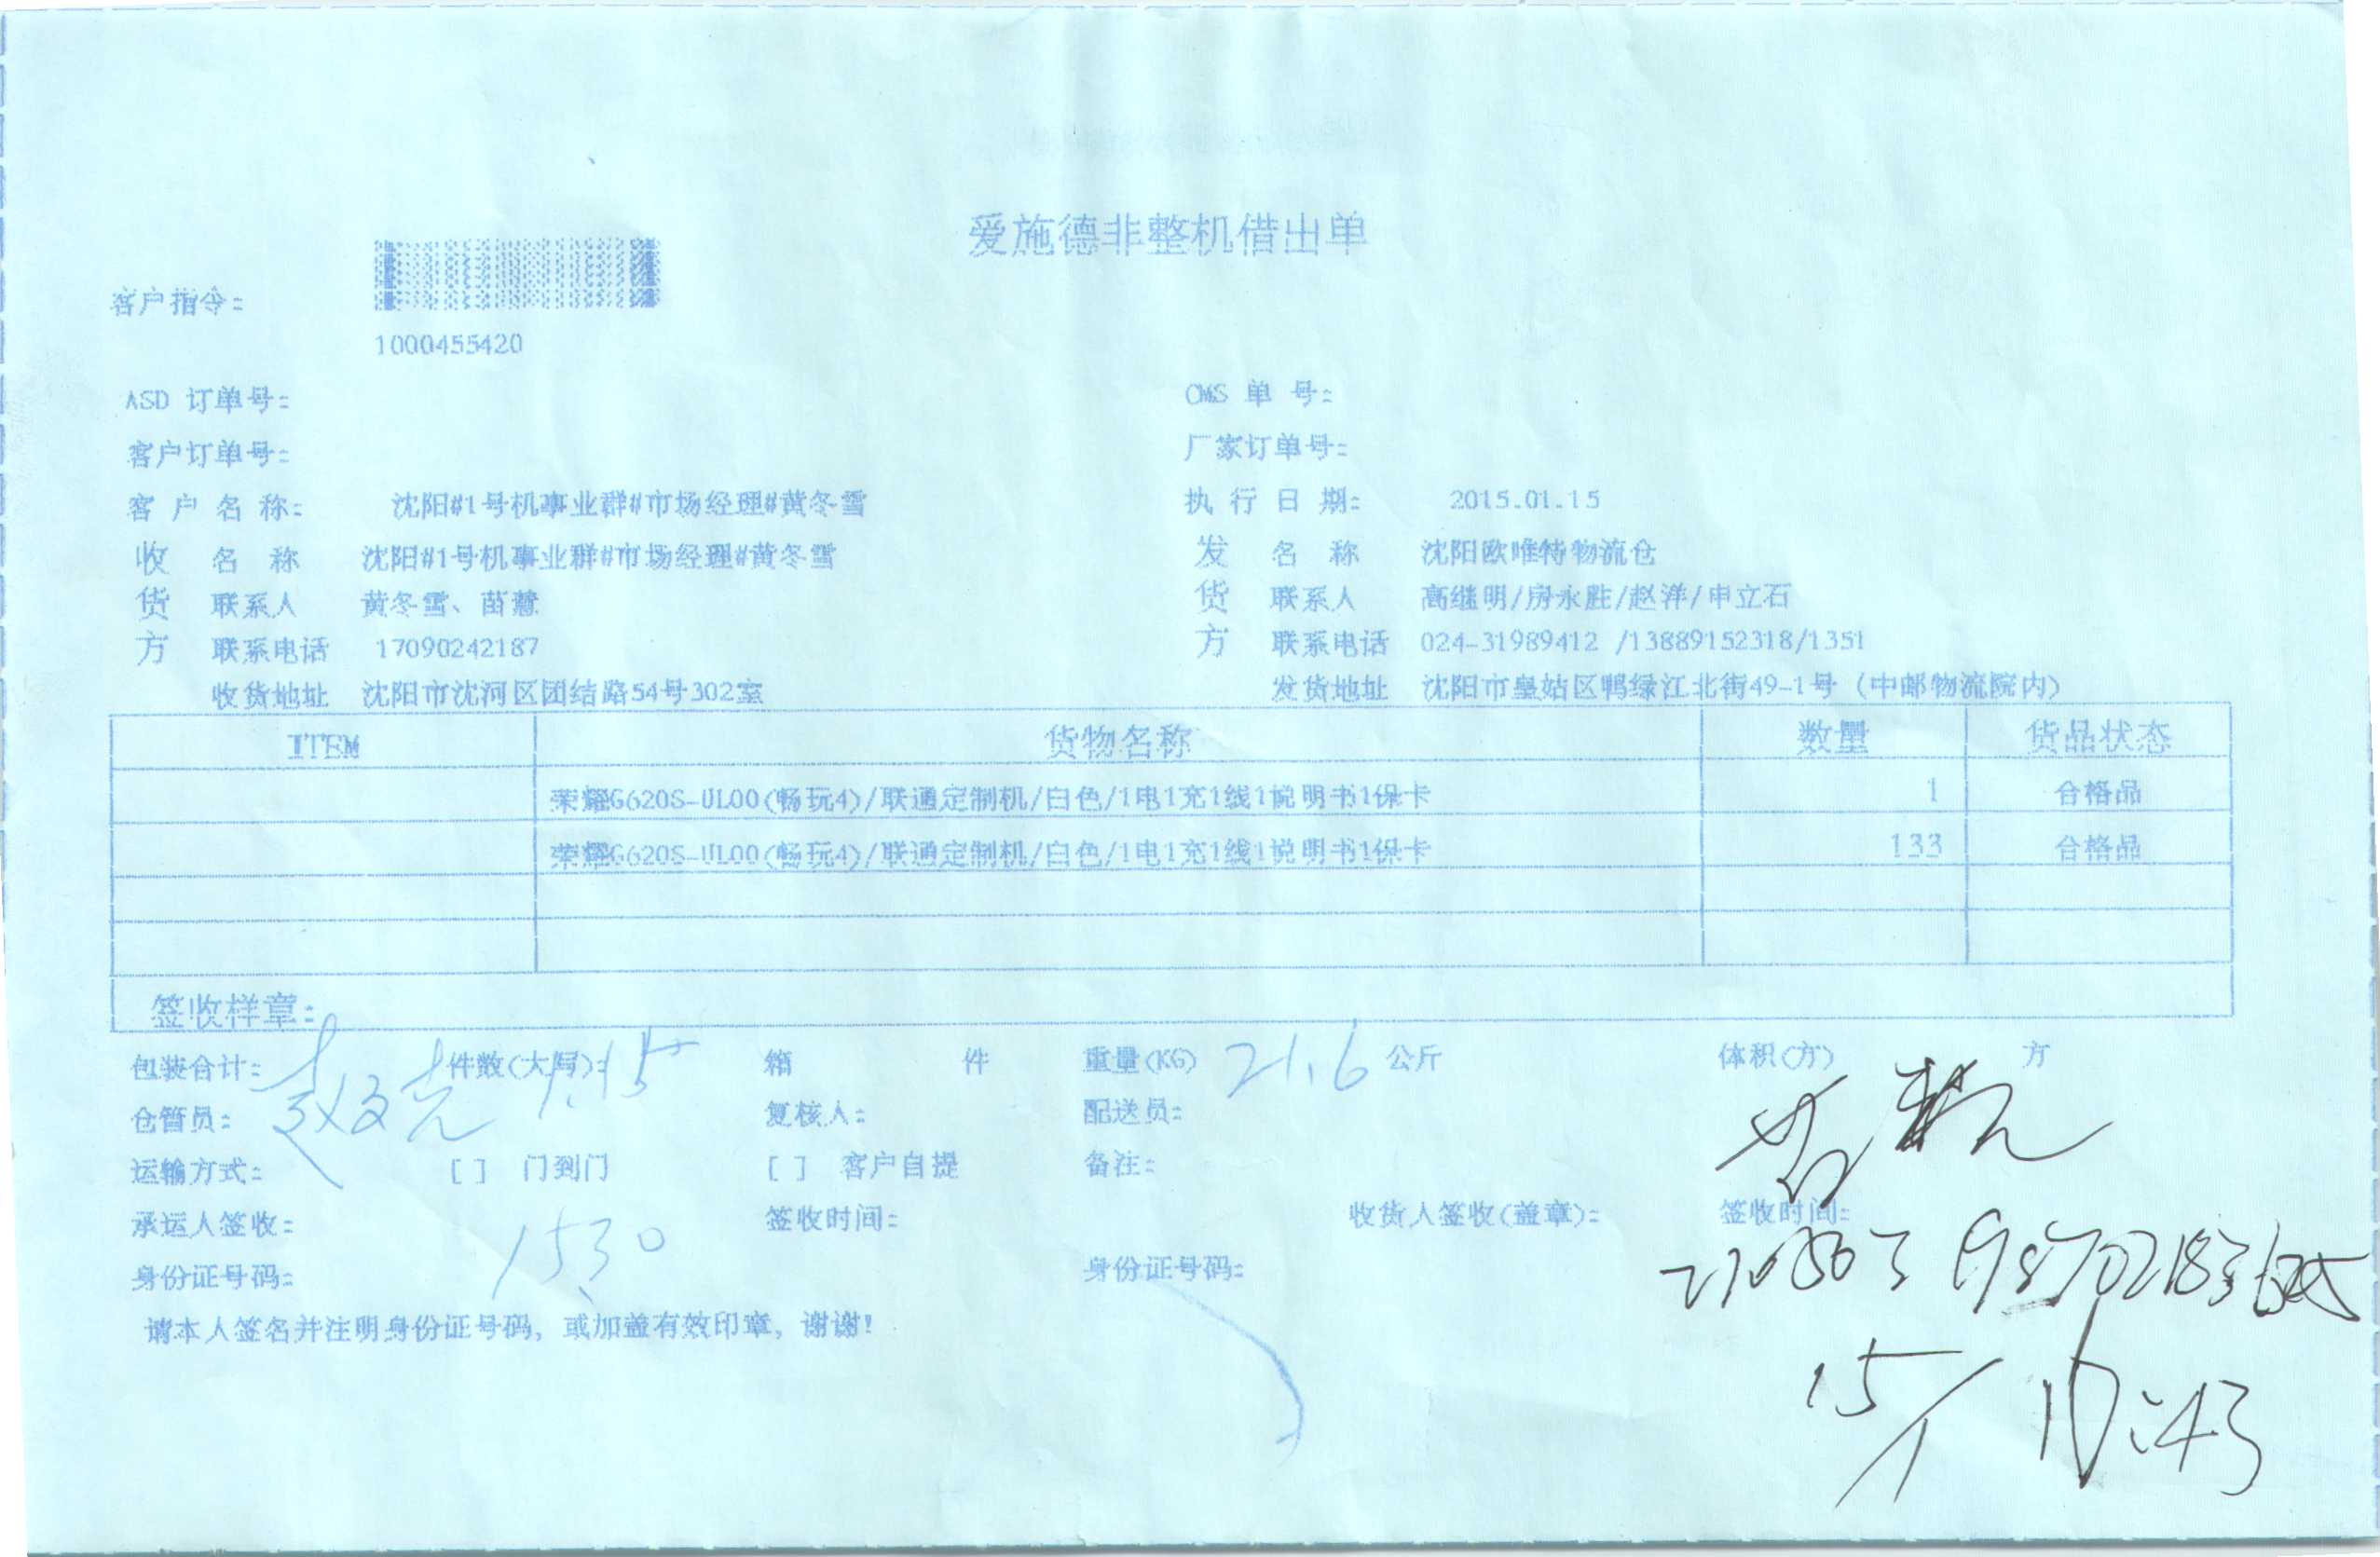 爱施德非整机借出单
客户指令:
1000455420
ASD 订单号: OMS 单 号:
客户订单号: 厂家订单号:
客 户 名 称: 沈阳#1号机事业群#市场经理#黄冬雪 执 行 日 期: 2015.01.15
收 名 称 沈阳#1号机事业群#市场经理#黄冬雪 发 名 称 沈阳欧唯特物流仓
货 联系人 黄冬雪、苗慧 货 联系人 高继明/房永胜/赵洋/申立石
方 联系电话 17090242187 方 联系电话 024-31989412 /13889152318/1351
收货地址 沈阳市沈河区团结路54号302室 发货地址 沈阳市皇姑区鸭绿江北街49-1号 (中邮物流院内)
ITEM 货物名称 数量 货品状态
荣耀G620S-UL00(畅玩4)/联通定制机/白色/1电1充1线1说明书1保卡 1 合格品
荣耀G620S-UL00(畅玩4)/联通定制机/白色/1电1充1线1说明书1保卡 133 合格品
签收样章:
包装合计: 件数(大写): 箱 件 重量(KG) 21.6 公斤 体积(方) 方
1.15
仓管员: 复核人: 配送员:
运输方式: [ ] 门到门 [ ] 客户自提 备注:
承运人签收: 签收时间: 收货人签收(盖章): 签收时间:
1530
身份证号码: 身份证号码:
请本人签名并注明身份证号码, 或加盖有效印章, 谢谢!
15/1